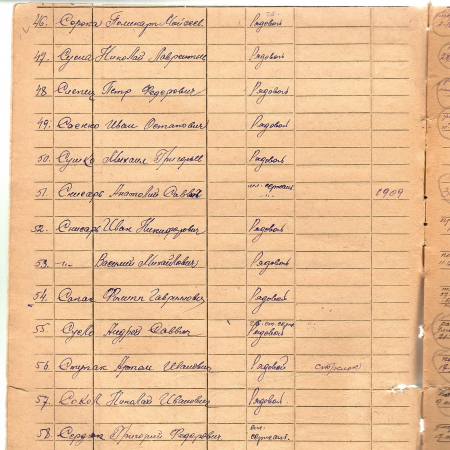 46. Сорока Поликарп Моисеев. Рядовой
47. Суена Николай Лаврентие Рядовой
48. Слепец Петр Федорович Рядовой
49. Саенко Иван Остапович Рядовой
50. Сушко Михаил Григорьев Рядовой
51. Снисарь Анатолий Саввов мл. сержант 1909
52. Снисарь Иван Никифорович Рядовой
53. -"- Василий Михайлович Рядовой
54. Сапач Филипп Гаврилович Рядовой
55. Суско Андрей Саввич Рядовой
56. Ступак Артем Иванович Рядовой стрелок
57. Соков Николай Иванович Рядовой
58. Григорий Федорович мл. сержант.